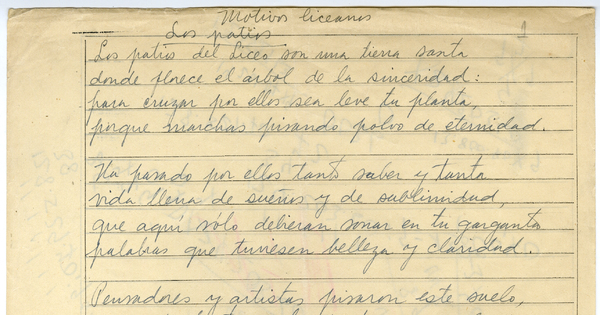 Motivos liceanos
Los patios
1
Los patios del Liceo son una tierra santa
donde florece el árbol de la sinceridad:
para cruzar por ellos sea leve tu planta,
porque marchas pisando polvo de eternidad.
Ha pasado por ellos tanto saber y tanta
vida llena de sueños y de sublimidad,
que aquí sólo debieran sonar en tu garganta
palabras que tuviesen belleza y claridad.
Pensadores y artistas pisaron este suelo,